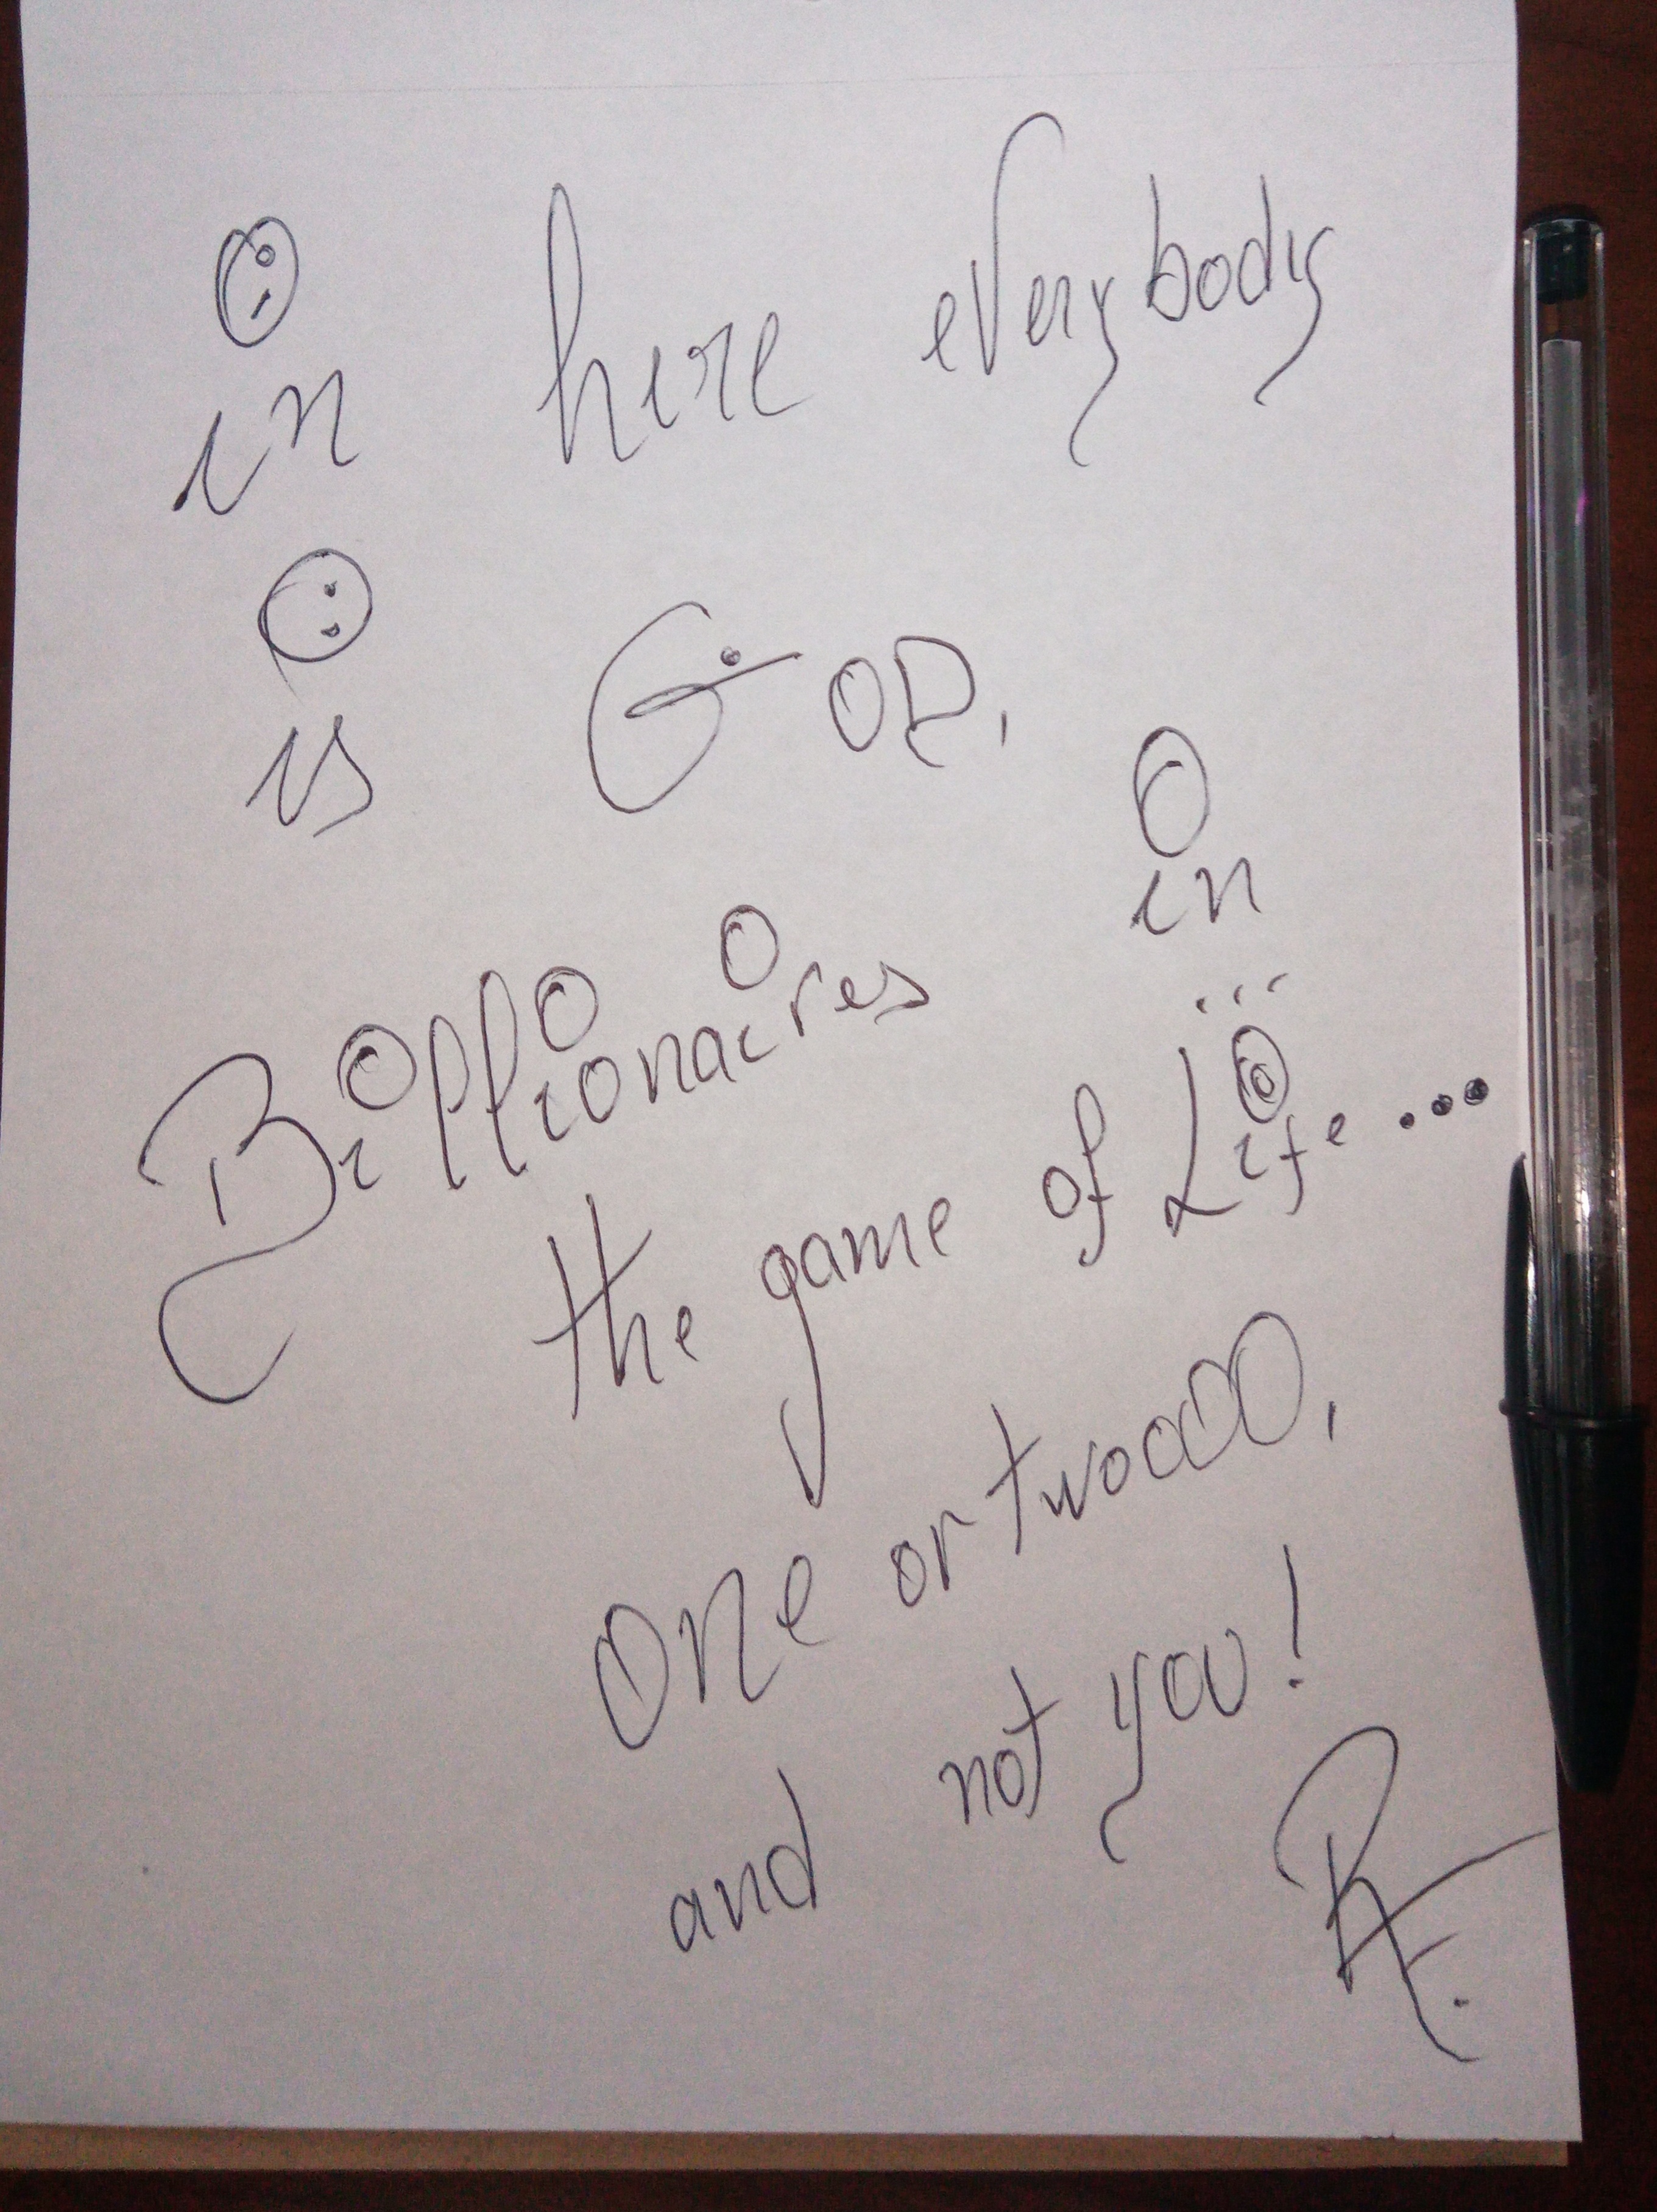 in here everybody
is GOD,
Billionaires in
the game of Life...
One or twoooOO,
and not you!
RF.